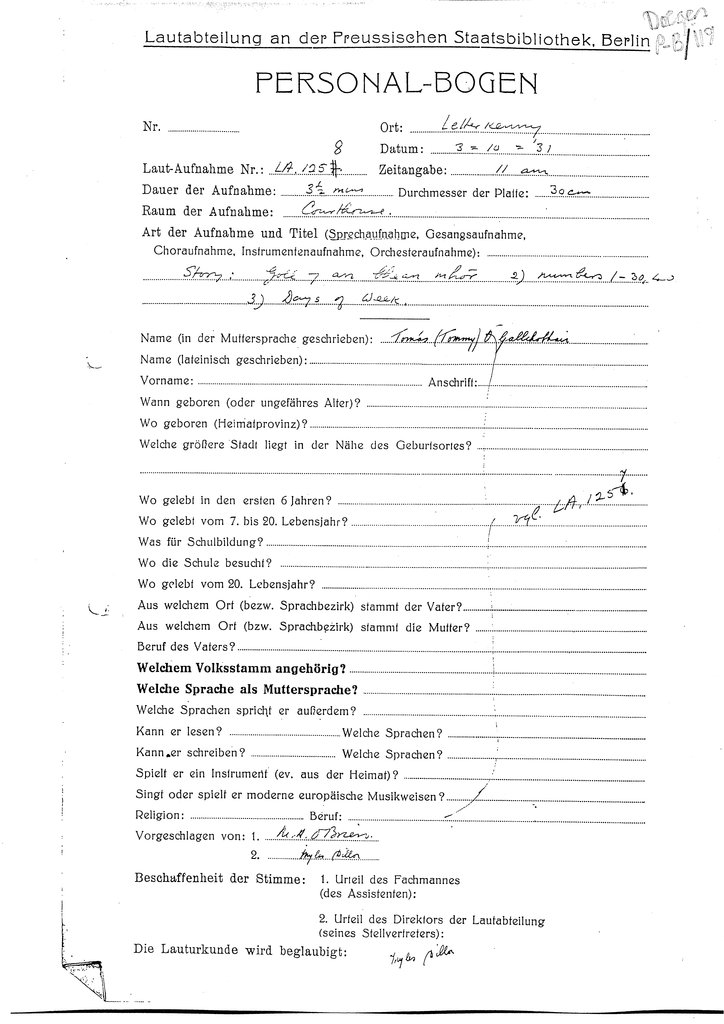 Doegen
Lautabteilung an der Preussischen Staatsbibliothek, Berlin
PERSONAL-BOGEN
Nr.
Ort: Letterkenny
8
Datum: 3 = 10 = '31
Laut-Aufnahme Nr.: LA. 125
Zeitangabe: 11 am
Dauer der Aufnahme: 3½ mins
Durchmesser der Platte: 30 cm
Raum der Aufnahme: Courthouse.
Art der Aufnahme und Titel (Sprechaufnahme, Gesangsaufnahme,
Choraufnahme, Instrumentenaufnahme, Orchesteraufnahme):
Story: Goll 7 an bhean mhór 2) numbers 1-30, 40
3) Days of Week.
Name (in der Muttersprache geschrieben): Tomás (Tommy)
Name (lateinisch geschrieben):
Vorname: Anschrift:
Wann geboren (oder ungefähres Alter)?
Wo geboren (Heimatprovinz)?
Welche größere Stadt liegt in der Nähe des Geburtsortes?
Wo gelebt in den ersten 6 Jahren?
vgl. LA. 125 7.
Wo gelebt vom 7. bis 20. Lebensjahr?
Was für Schulbildung?
Wo die Schule besucht?
Wo gelebt vom 20. Lebensjahr?
Aus welchem Ort (bezw. Sprachbezirk) stammt der Vater?
Aus welchem Ort (bzw. Sprachbezirk) stammt die Mutter?
Beruf des Vaters?
Welchem Volksstamm angehörig?
Welche Sprache als Muttersprache?
Welche Sprachen spricht er außerdem?
Kann er lesen? Welche Sprachen?
Kann er schreiben? Welche Sprachen?
Spielt er ein Instrument (ev. aus der Heimat)?
Singt oder spielt er moderne europäische Musikweisen?
Religion: Beruf:
Vorgeschlagen von: 1. M. A. O'Brien.
2. Myles Dillon
Beschaffenheit der Stimme: 1. Urteil des Fachmannes
(des Assistenten):
2. Urteil des Direktors der Lautabteilung
(seines Stellvertreters):
Die Lauturkunde wird beglaubigt: Myles Dillon